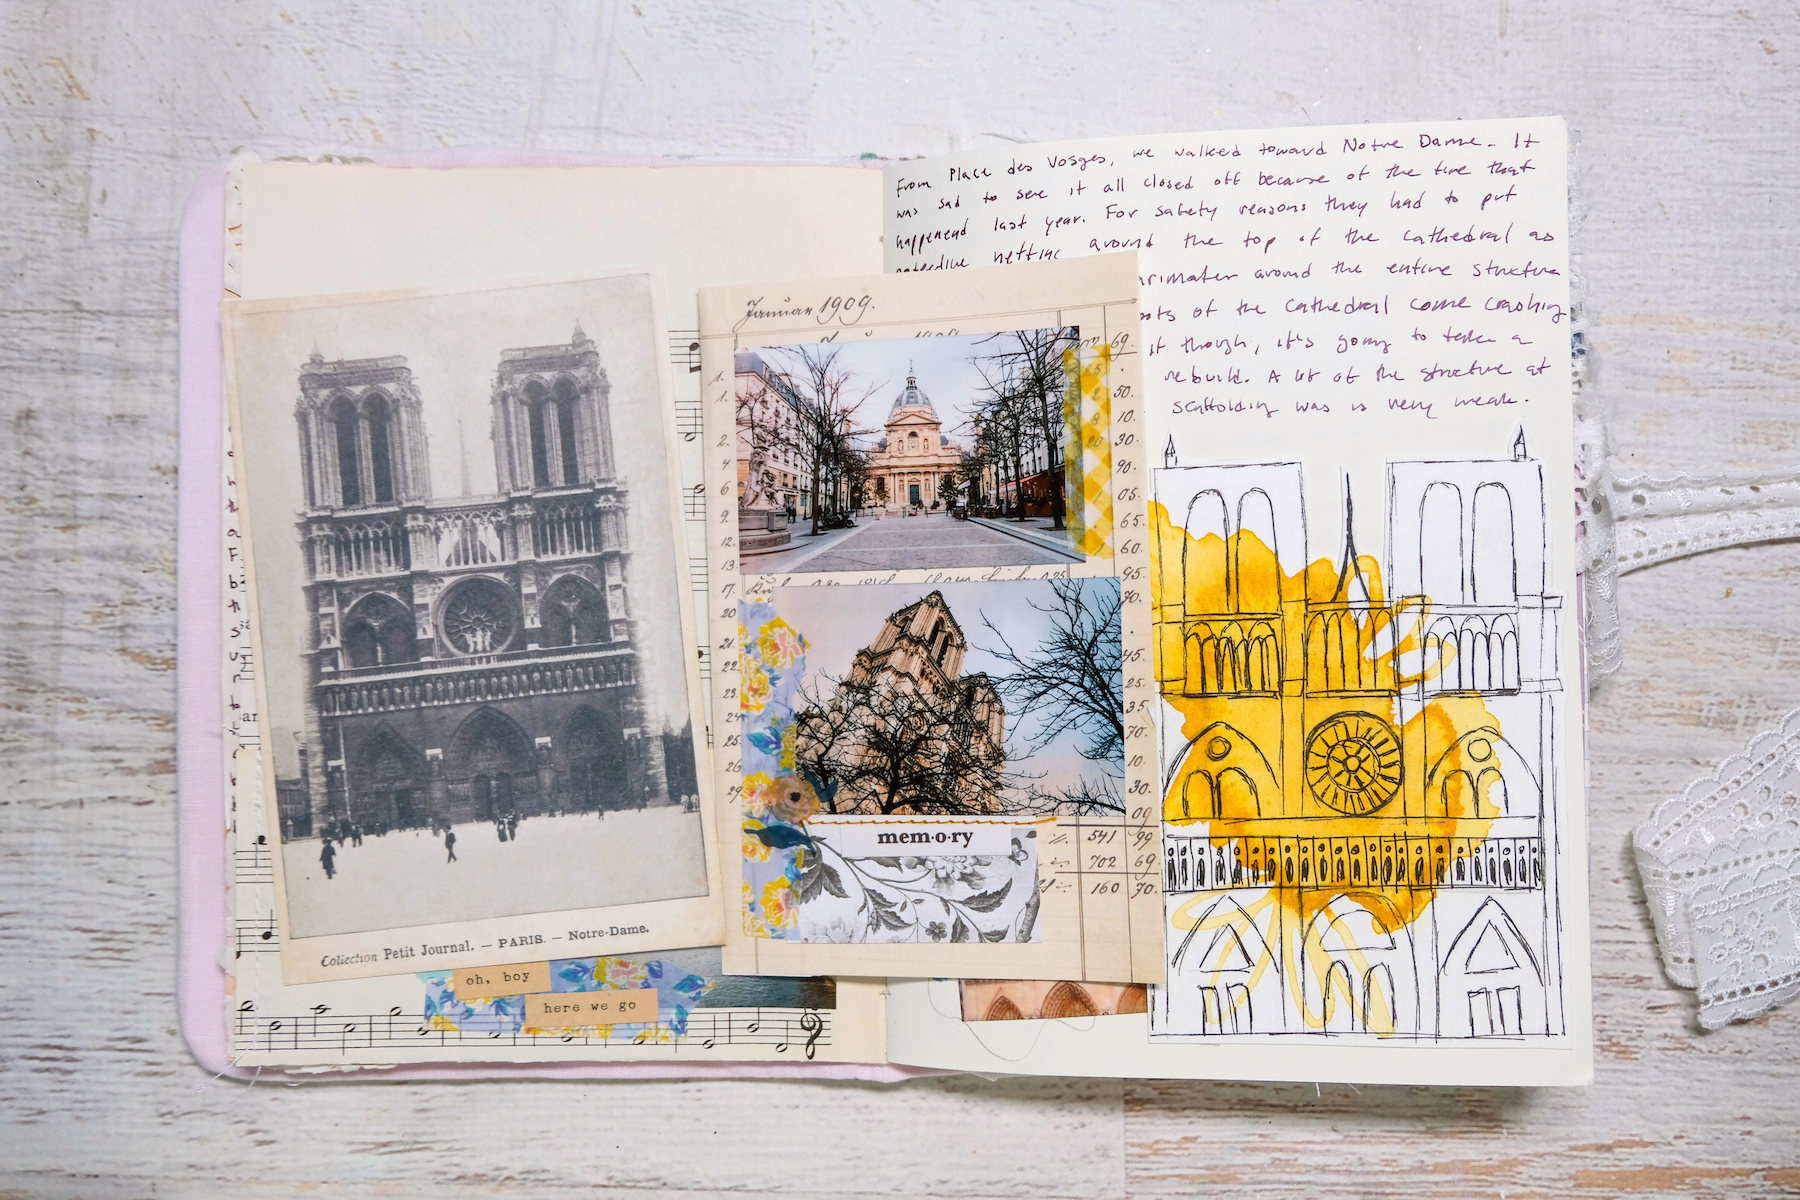 From Place des Vosges, we walked toward Notre Dame. It
was sad to see it all closed off because of the fire that
happened last year. For safety reasons they had to put
netting
around the top of the cathedral as
around the entire structure
of the cathedral come crashing
it though, it's going to take a
rebuild. A lot of the structure at
scaffolding was is very weak.
Januar 1909.
69.
1.
50.
10.
2.
30.
4
90.
6
05.
9.
65.
12.
60.
13.
95.
17.
70.
20
21.
45.
22.
25.
23.
35.
24
70.
25.
10.
26
30.
29
09
mem·o·ry
541 99
702 69
160 70.
Collection Petit Journal. — PARIS. — Notre-Dame.
oh, boy
here we go